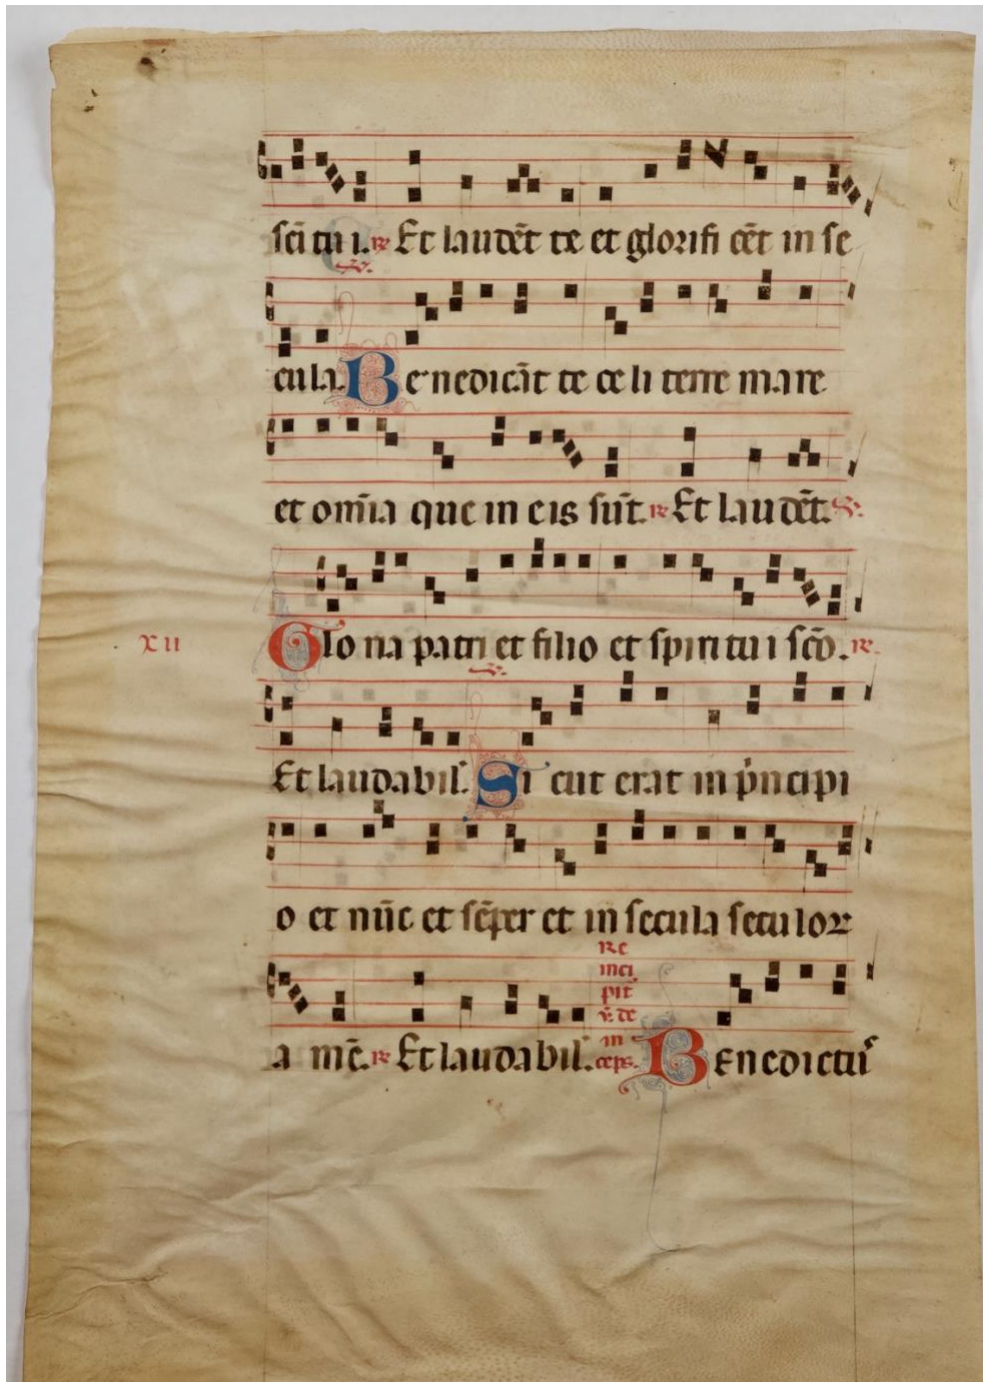 sc̄i tu i. ℟ Et laudēt te et glorifi cēt in se
℣.
cula. Be nedicāt te celi terre mare
et om̄ia que in eis sūt. ℟ Et laudēt. ℣.
XII
Glo ria patri et filio et spiritu i sc̄o. ℟.
℣.
Et laudabil'. Si cut erat in p̍ncipi
o et nūc et sēper et in secula seculoꝝ
Re
inci
pit
℣. de
in
ceps.
a mē. ℟ Et laudabil'. Benedictus